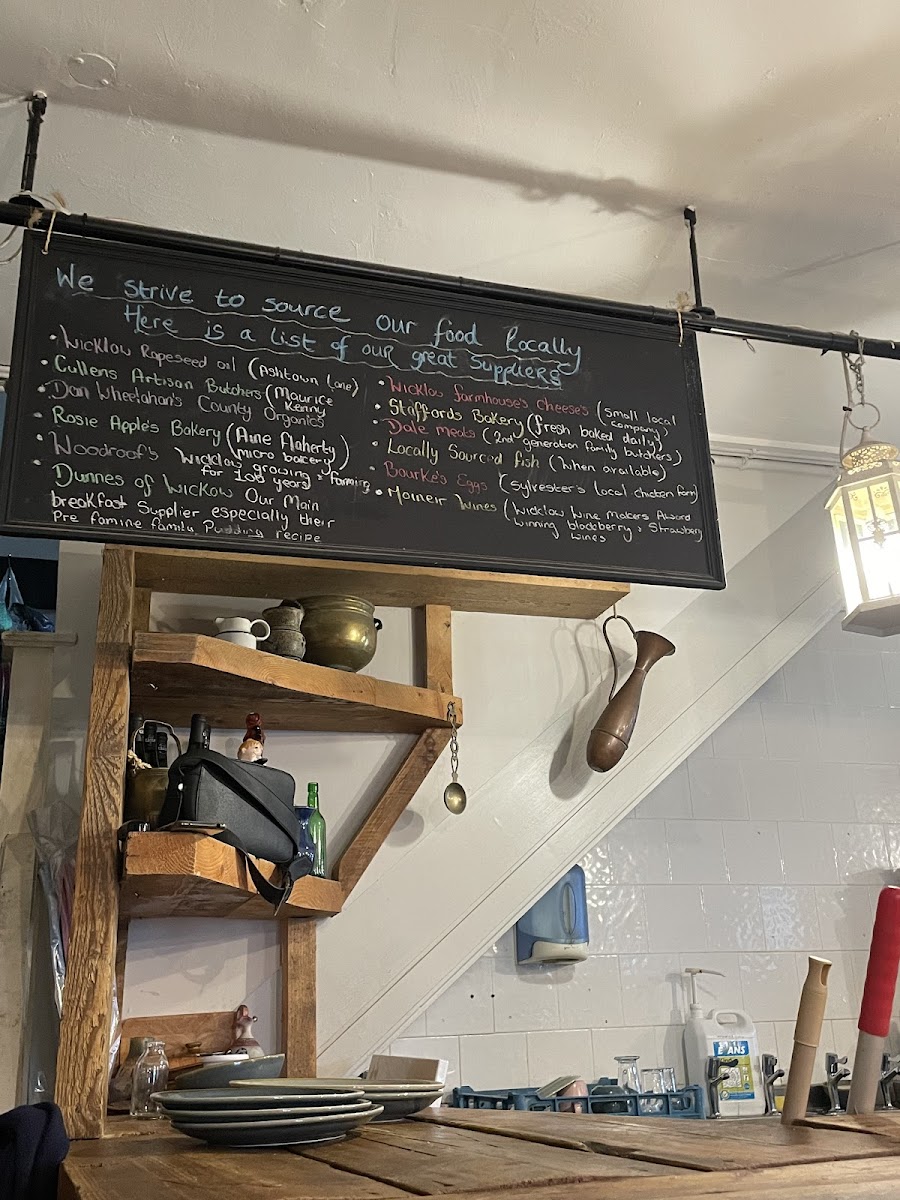 We strive to source our food locally
Here is a list of our great Suppliers
• Wicklow Rapeseed oil (Ashtown Lane)
• Cullens Artisan Butchers (Maurice
Kenny
• Dan Wheelahan's County Organics
• Rosie Apple's Bakery (Aine Flaherty)
micro bakery
• Woodroof's Wicklow growing & farming
for 100 years
• Dunnes of Wicklow Our Main
breakfast Supplier especially their
Pre famine family Pudding recipe
• Wicklow farmhouse's cheese's (small local
company)
• Staffords Bakery (fresh baked daily)
• Dale meats (2nd generation family butchers)
• Locally Sourced fish (when available)
• Bourke's Eggs (Sylvester's local chicken farm)
• Moineir Wines (Wicklow Wine Makers Award
winning blackberry & Strawberry
Wines
EVANS